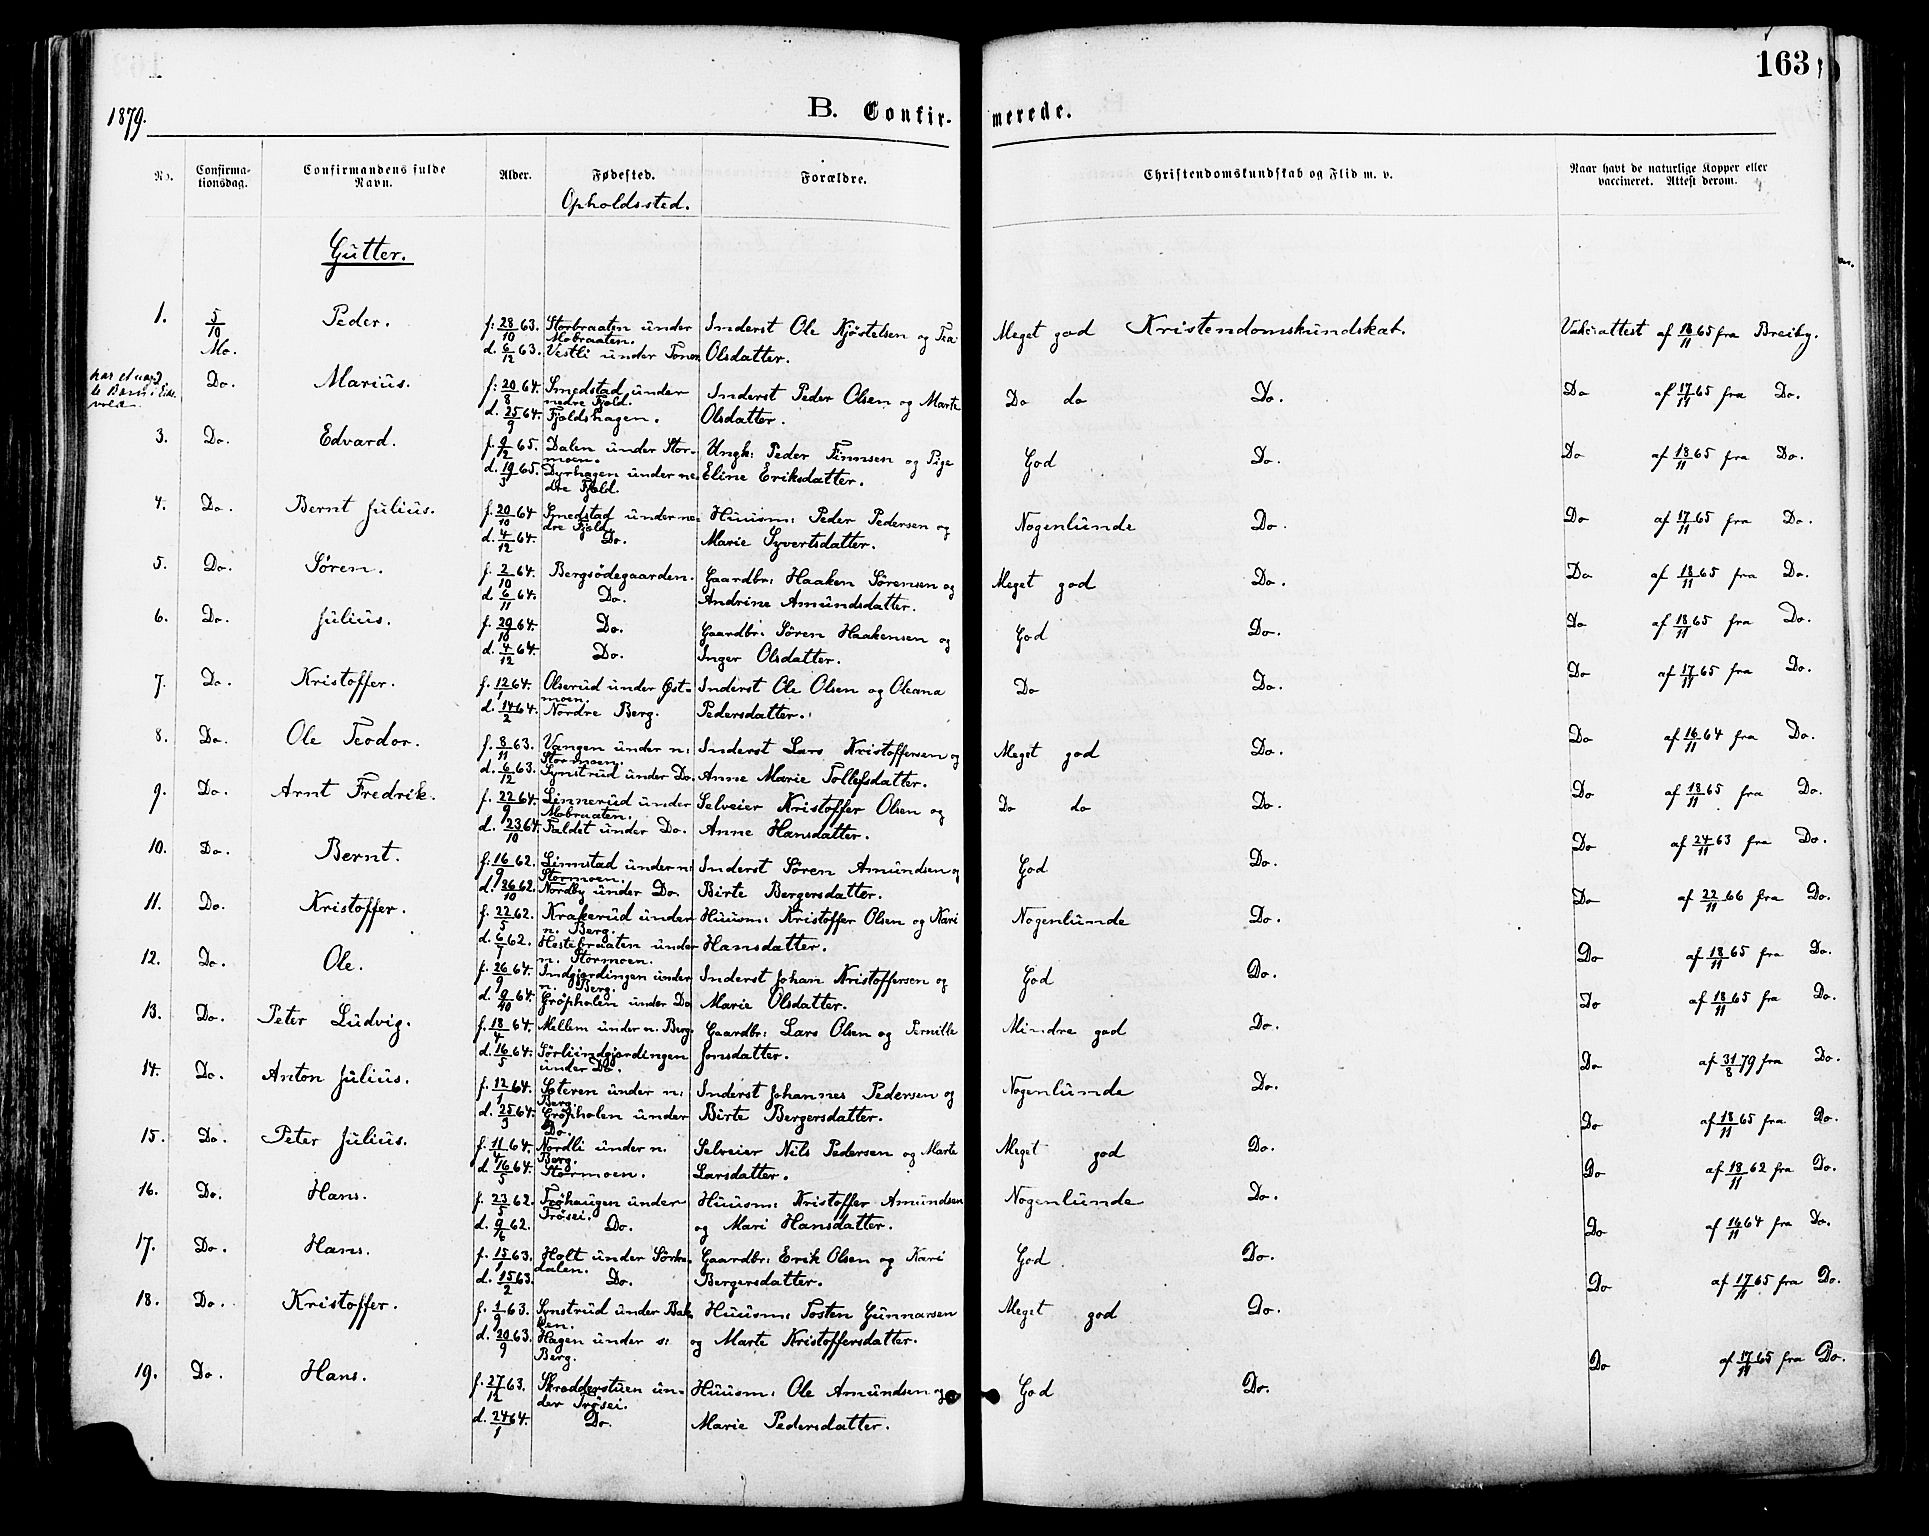 163
1879.
B. Confir-merede.
No. Confirma-tionsdag. Confirmandens fulde Navn. Alder. Fødested. Forældre. Christendomskundskab og Flid m. v. Naar havt de naturlige Kopper eller vaccineret. Attest derom.
Opholdssted.
Gutter.
1. 5/10 Peder. f: 28/10 63. Storbraaten under Inderst Ole Kjøstelsen og Tea Meget god Kristendomskundskab. Vakcinattest af 18/11 65 fra Breiby.
Mo. Mobraaten. d. 6/12 63. Vestli under Olsdatter.
har et aar
Do. Marius. f: 20/8 64. Smedstad under nedre Fjold. Inderst Peder Olsen og Marte Do do Do. Do af 17/11 65 fra Do.
d. 25/9 64. Fjoldshagen. Olsdatter.
3. Do. Edvard. f. 9/2 65. Dalen under Stormoen. Ungk: Peder Finnsen og Pige God Do. Do af 18/11 65 fra Do.
d. 19/3 65. Dyrhagen under nedre Fjold. Eline Eriksdatter.
4. Do. Bernt Julius. f. 20/10 64 Smedstad under nedre Fjold. Huusm: Peder Pedersen og Nogenlunde Do. Do af 17/11 65 fra Do.
d. 4/12 64. Do. Marie Syvertsdatter.
5. Do. Søren. f. 2/10 64. Bergsødegaarden. Gaardbr: Haaken Sørensen og Meget god Do. Do af 18/11 65 fra Do.
d. 6/11 64. Do. Andrine Amundsdatter.
6. Do. Julius. f. 29/10 64. Do. Gaardbr: Søren Haakensen og God Do. Do af 18/11 65 fra Do.
d. 4/12 64. Do. Inger Olsdatter.
7. Do. Kristoffer. f. 12/1 64. Olserud under Østmoen. Inderst Ole Olsen og Oleana Do Do. Do af 17/11 65 fra Do.
d. 14/2 64. Nordre Berg. Pedersdatter.
8. Do. Ole Teodor. f. 8/11 63. Vangen under n: Stormoen. Inderst Lars Kristoffersen og Meget god Do. Do af 16/11 64 fra Do.
d. 6/12 63. Synstrud under Do. Anne Marie Tollefsdatter.
9. Do. Arnt Fredrik. f. 22/9 64. Linnerud under Mobraaten. Selveier Kristoffer Olsen og Do do Do. Do af 18/11 65 fra Do.
d. 23/10 64. Faldet under Do. Anne Hansdatter.
10. Do. Bernt. f: 16/9 62. Linnstad under n: Stormoen. Inderst Søren Amundsen og God Do. Do af 24/11 63 fra Do.
d. 26/10 62. Nordby under Do. Birte Bergersdatter.
11. Do. Kristoffer. f. 22/5 62. Krakerud under n. Berg. Huusm: Kristoffer Olsen og Kari Nogenlunde Do. Do af 22/11 66 fra Do.
d. 6/7 62. Hestebraaten under n. Stormoen. Hansdatter.
12. Do. Ole. f. 26/9 64. Indgjerdingen under n. Berg. Inderst Johan Kristoffersen og God Do. Do af 18/11 65 fra Do.
d. 9/10 64. Grøpholen under Do Marie Olsdatter.
13. Do. Peter Ludvig. f. 18/4 64. Mellem under n. Berg. Gaardbr: Lars Olsen og Pernille Mindre god Do. Do af 18/11 65 fra Do.
d. 16/5 64. Sørliindgjerdingen under Do. Jonsdatter.
14. Do. Anton Julius. f. 12/1 64. Soteren under n: Berg. Inderst Johannes Pedersen og Nogenlunde Do. Do af 31/8 79 fra Do.
d. 25/3 64. Grøpholen under Do. Birte Bergersdatter.
15. Do. Peter Julius. f. 11/4 64. Nordli under n. Berg. Selveier Nils Pedersen og Marte Meget god Do. Do af 18/11 65 fra Do.
d. 16/5 64. Stormoen. Larsdatter.
16. Do. Hans. f. 23/5 62. Trøhaugen under Trøsei. Huusm: Kristoffer Amundsen Nogenlunde Do. Do af 18/11 62 fra Do.
d. 9/6 62. Do. og Mari Hansdatter.
17. Do. Hans. f. 15/1 63. Holt under Sørkedalen. Gaardbr: Erik Olsen og Kari God Do. Do af 16/11 64 fra Do.
d. 15/2 63. Do. Bergersdatter.
18. Do. Kristoffer. f. 1/9 63. Synstrud under Bakken. Huusm: Tosten Gunnarsen Meget god Do. Do af 17/11 65 fra Do.
d. 20/9 63. Hagen under s: Berg. og Marte Kristoffersdatter.
19. Do. Hans. f. 27/12 63. Skrædderstuen under Trøsei. Huusm: Ole Amundsen og God Do. Do af 17/11 65 fra Do.
d. 24/1 64. Do. Marie Pedersdatter.